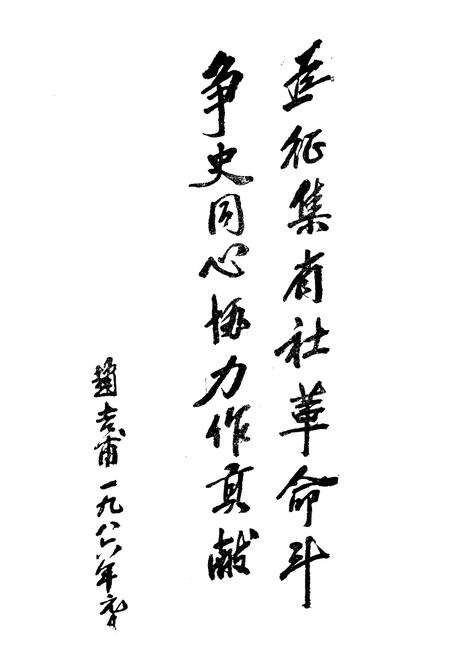 征集省社革命斗
争史同心恊力作贡献
趙志甫一九八六年